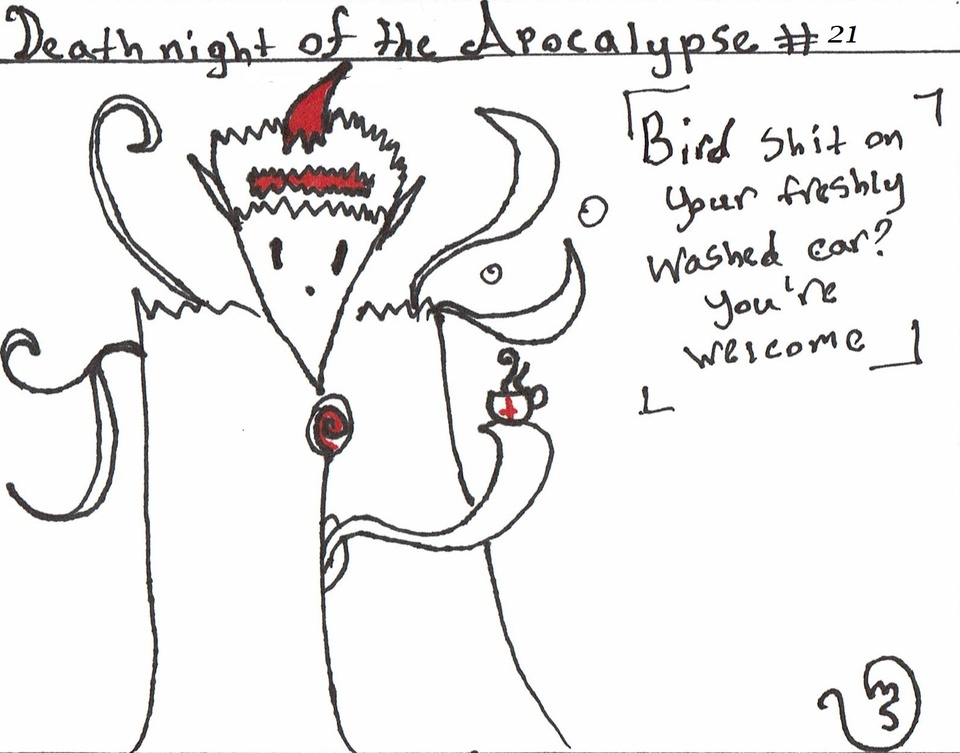 Death night of the Apocalypse # 21
Bird shit on
your freshly
washed car?
you're
welcome